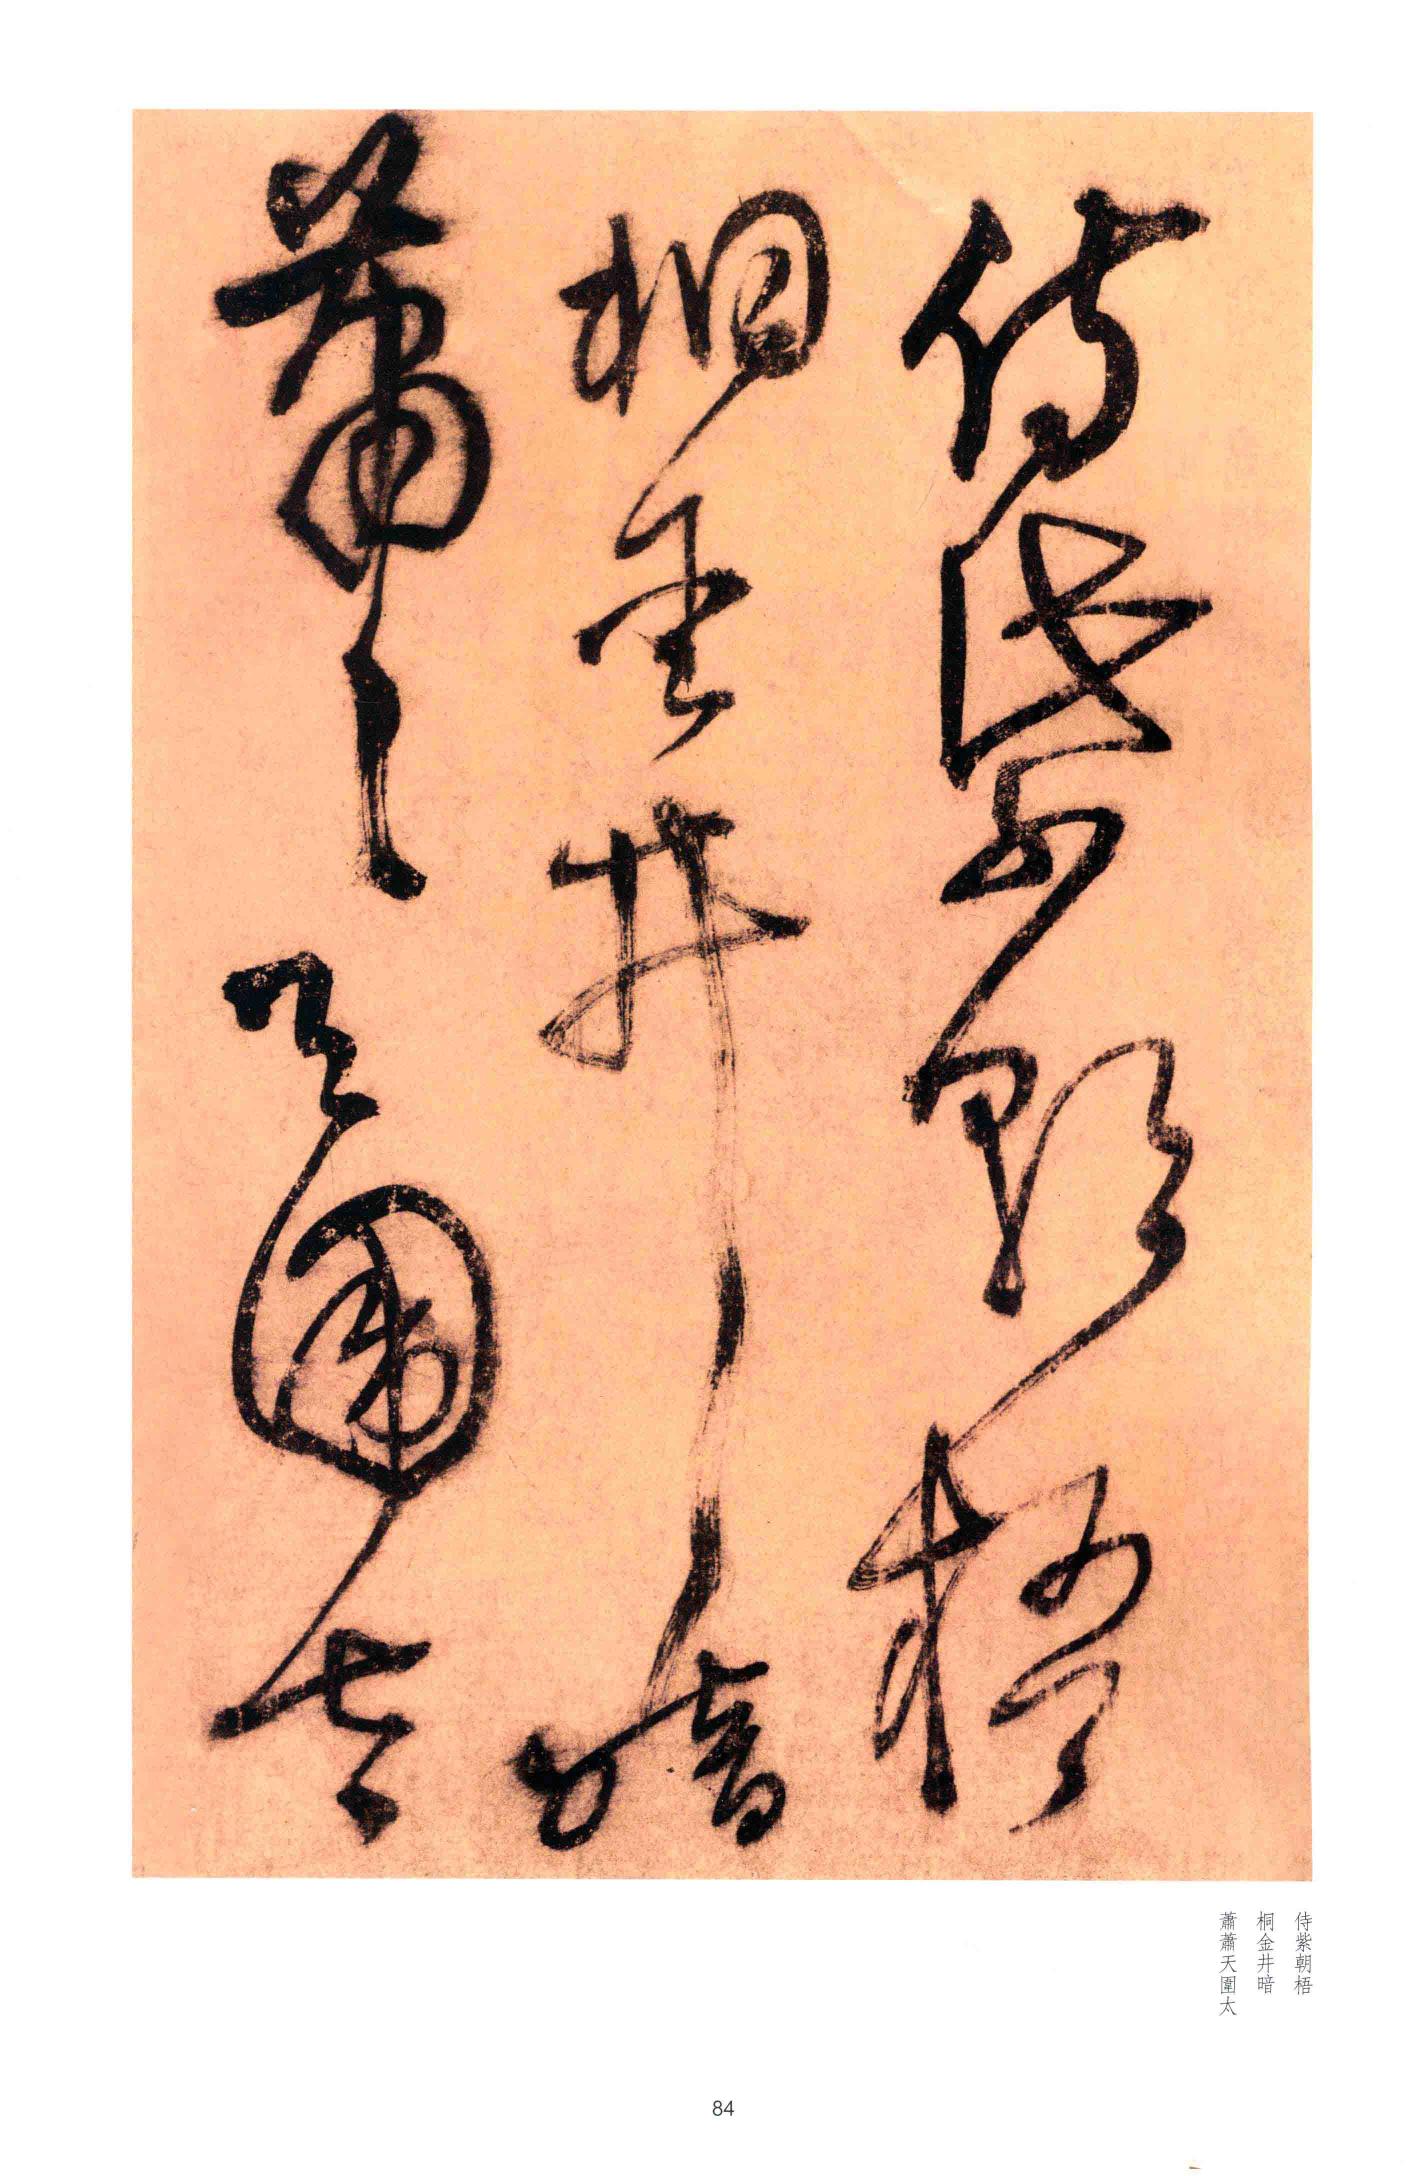 侍紫朝梧
桐金井暗
蕭〻天圍太
侍紫朝梧
桐金井暗
蕭蕭天圍太
84